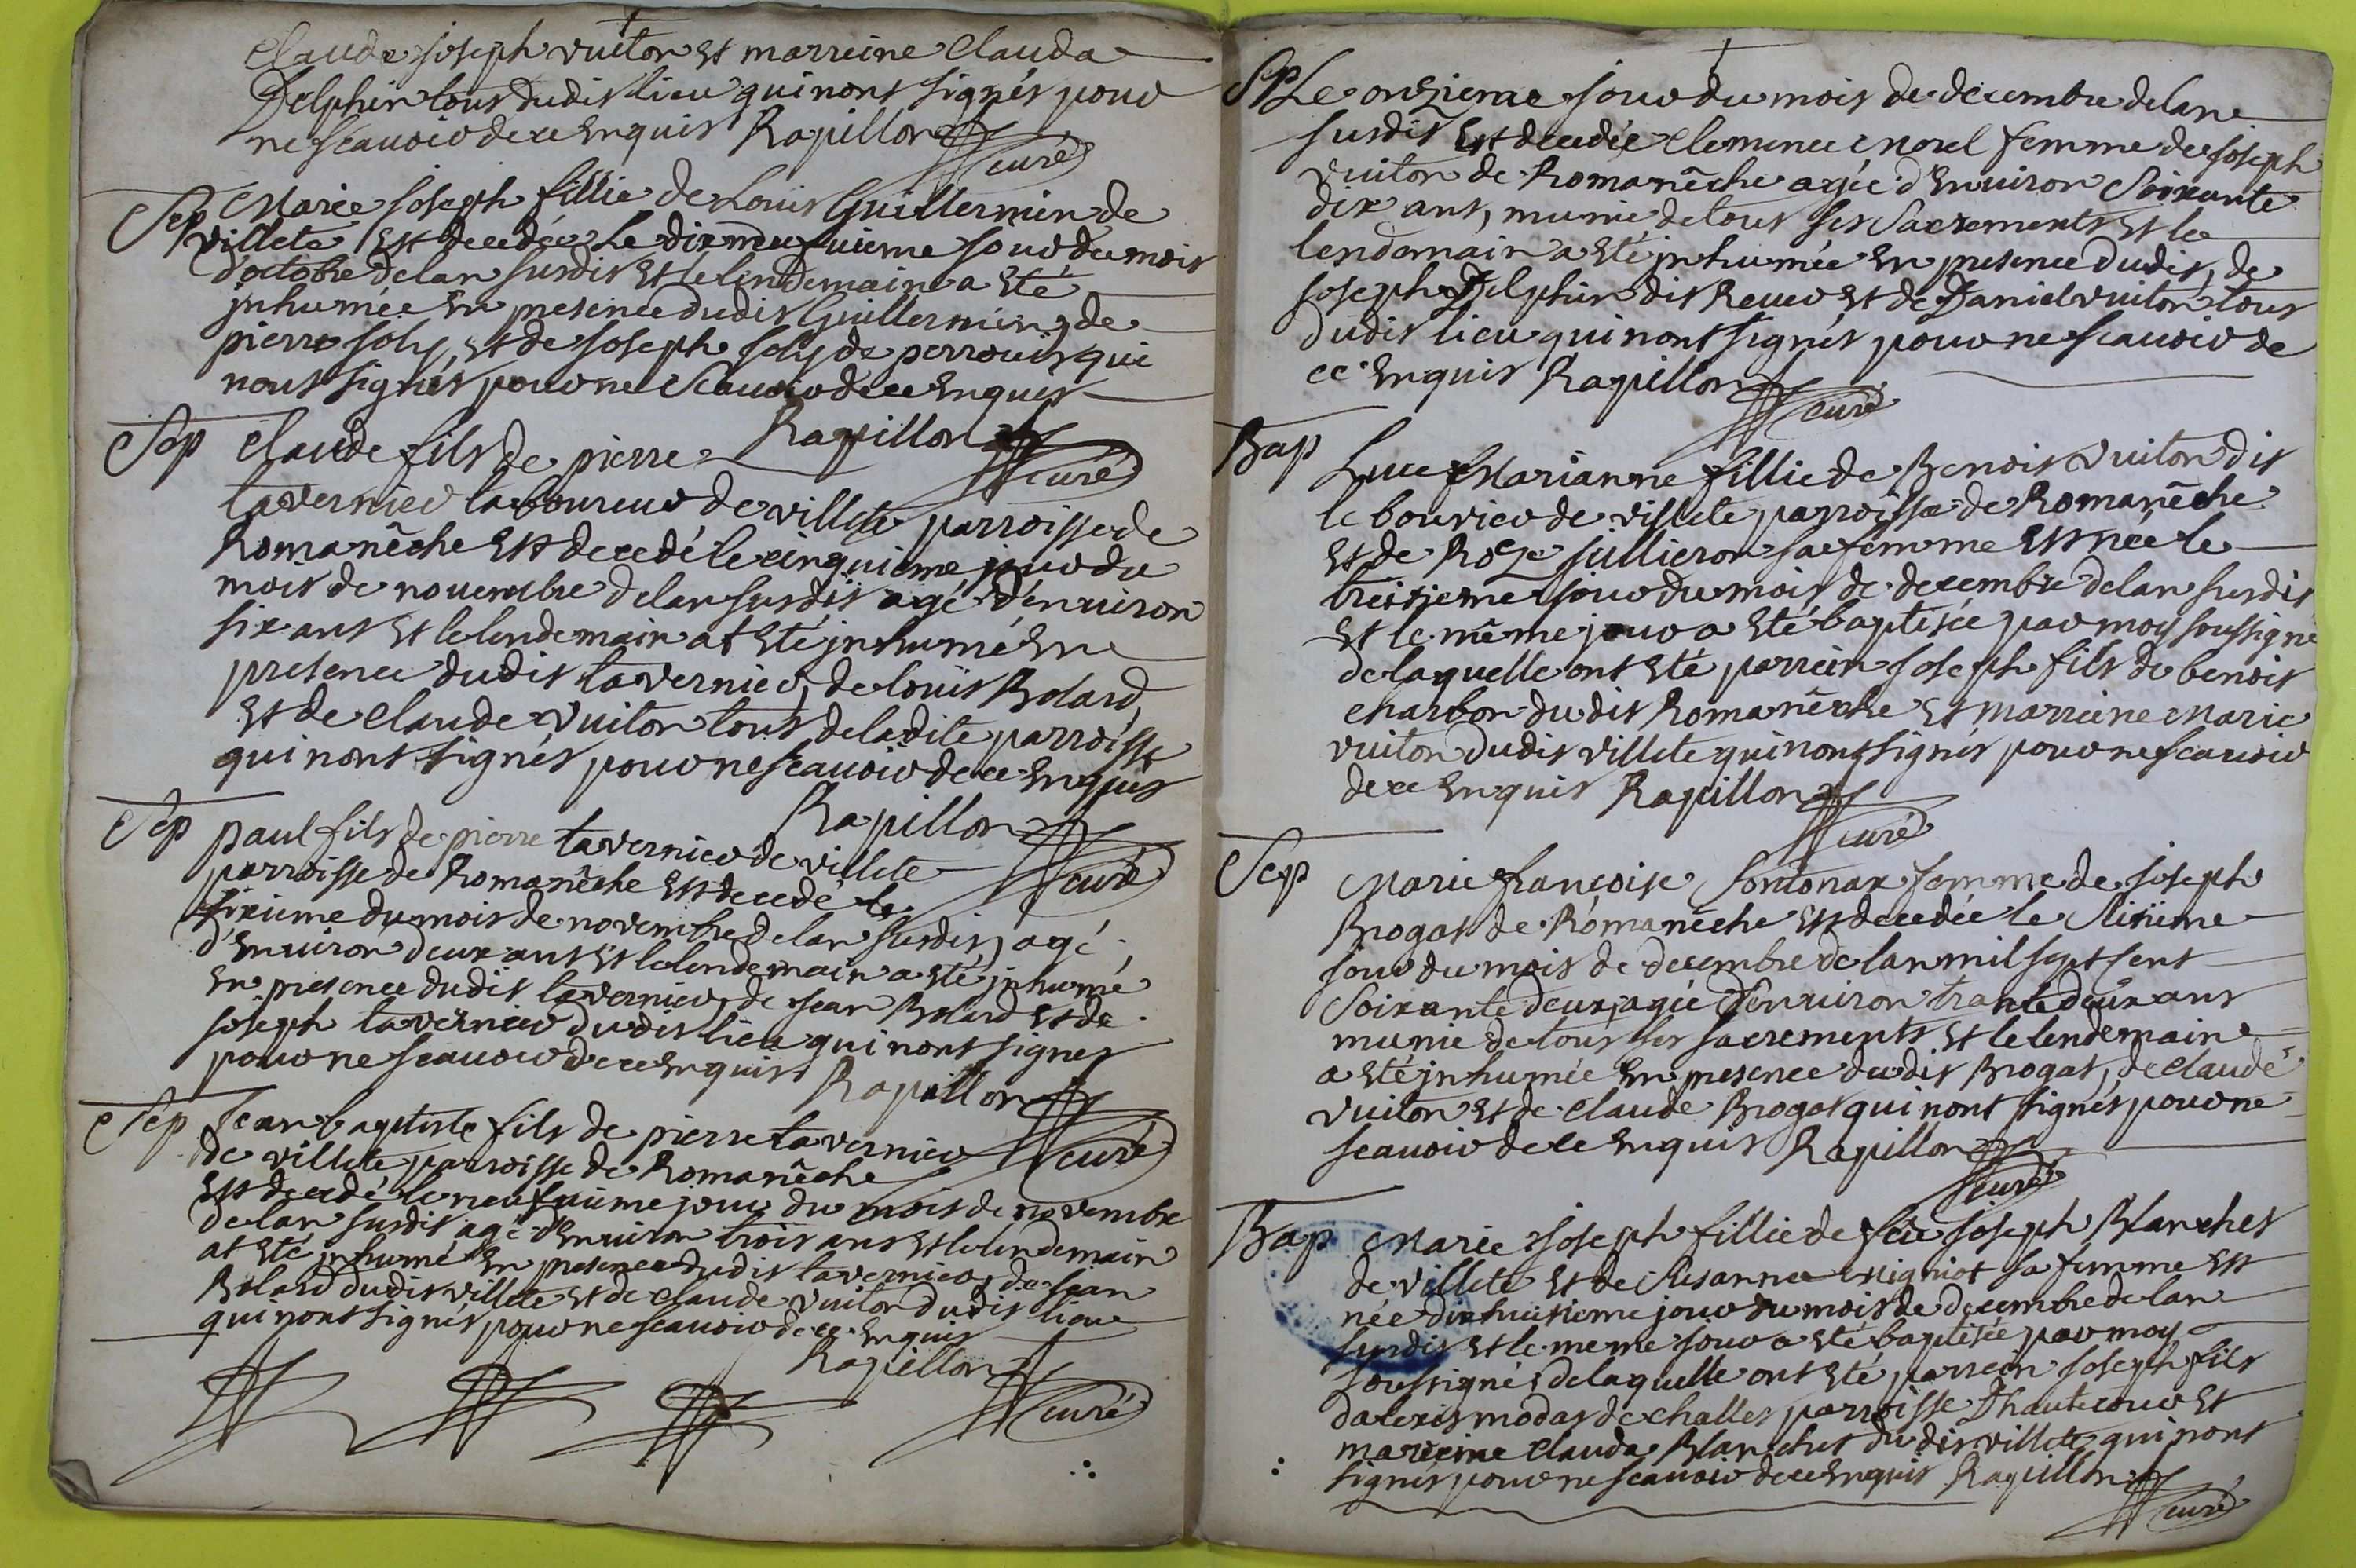 Claude joseph vuiton Et marreine Clauda
Delphin tous dudit lieu qui nont signés pour
ne scauoir de ce Enquis Rapillon
curé
Sep Marie joseph fillie de Louis Guillermin de
villete Est decedée Le dixneufuieme jour du mois
d'octobre de lan susdit Et le lendemain a Eté
jnhumée En presence dudit Guillermin, de
pierre joly, Et de joseph joly de perrouis qui
nont signés pour ne Scauoir de ce Enquis
Rapillon
curé
Sep Claude fils de pierre
tavernier laboureur de villete parroisse de
Romanêche Est decedé le cinquieme jour du
mois de nouembre de lan susdit agé d'enuiron
six ans Et le lendemain at Eté jnhumé En
presence dudit tavernier, de louis Bolard,
Et de Claude vuiton tous de ladite parroisse
qui nont signés pour ne scauoir de ce Enquis
Rapillon
curé
Sep paul fils de pierre tavernier de villete
parroisse de Romanêche Est decedé le
sixieme du mois de novembre de lan susdit, agé
d'Enuiron deux ans Et le lendemain a eté jnhumé
En presence dudit tavernier, de jean Bolard Et de
joseph tavernier dudit lieu qui nont signes
pour ne scauoir de ce Enquis Rapillon
curé
Sep Jean baptiste fils de pierre tavernier
de villete parroisse de Romanêche
Est decedé le neufuieme jour du mois de novembre
de lan susdit agé d'Enuiron trois ans Et le lendemain
at Eté jnhumé En presence dudit tavernier, de jean
Bolard dudit villete Et de Claude vuiton dudit lieu
qui nont signés pour ne scauoir de ce Enquis
Rapillon
curé
Sep Le onzieme jour du mois de decembre de lan
susdit Est decedée Clemence Morel femme de joseph
vuiton de Romanêche agée d'Enuiron Soixante
dix ans, munie de tous ses Sacrements Et le
lendemain a Eté jnhumée En presence dudit, de
joseph Delphin dit Reuer Et de Daniel vuiton tous
dudit lieu qui nont signés pour ne scauoir de
ce Enquis Rapillon
curé
Bap Luce Marianne fillie de Benoit vuiton dit
le bouvier de villete parroisse de Romanêche
Et de Roze jullieron sa femme Est née le
treizieme jour du mois de decembre de lan susdit
Et le même jour a Eté baptisée par moy soussigné
de laquelle ont Eté parrein joseph fils de benoit
charbon dudit Romanêche Et marreine Marie
vuiton dudit villete qui nont signés pour ne scauoir
de ce Enquis Rapillon
curé
Sep Marie françoise femme de joseph
Brogat de Romanêche Est decedée le
jour du mois de decembre de lan mil sept sent
Soixante deux, agée d'Enuiron trante deux ans
munie de tous ses sacrements Et le lendemain
a Eté jnhumée En presence dudit Brogat, de Claude
vuiton Et de Claude Brogat qui nont signés pour ne
scauoir de ce Enquis Rapillon
curé
Bap Marie joseph fillie de feu joseph Blanchet
de villete Et de Susanne Migniot sa femme Est
née dixhuitieme jour du mois de decembre de lan
susdit Et le meme jour a Eté baptisée par moy
soussigné, de laquelle ont Eté parrein joseph fils
dalexis modas de challes parroisse D'hautecour Et
marreine Clauda Blanchet dudit villete qui nont
signés pour ne scauoir de ce Enquis Rapillon
curé